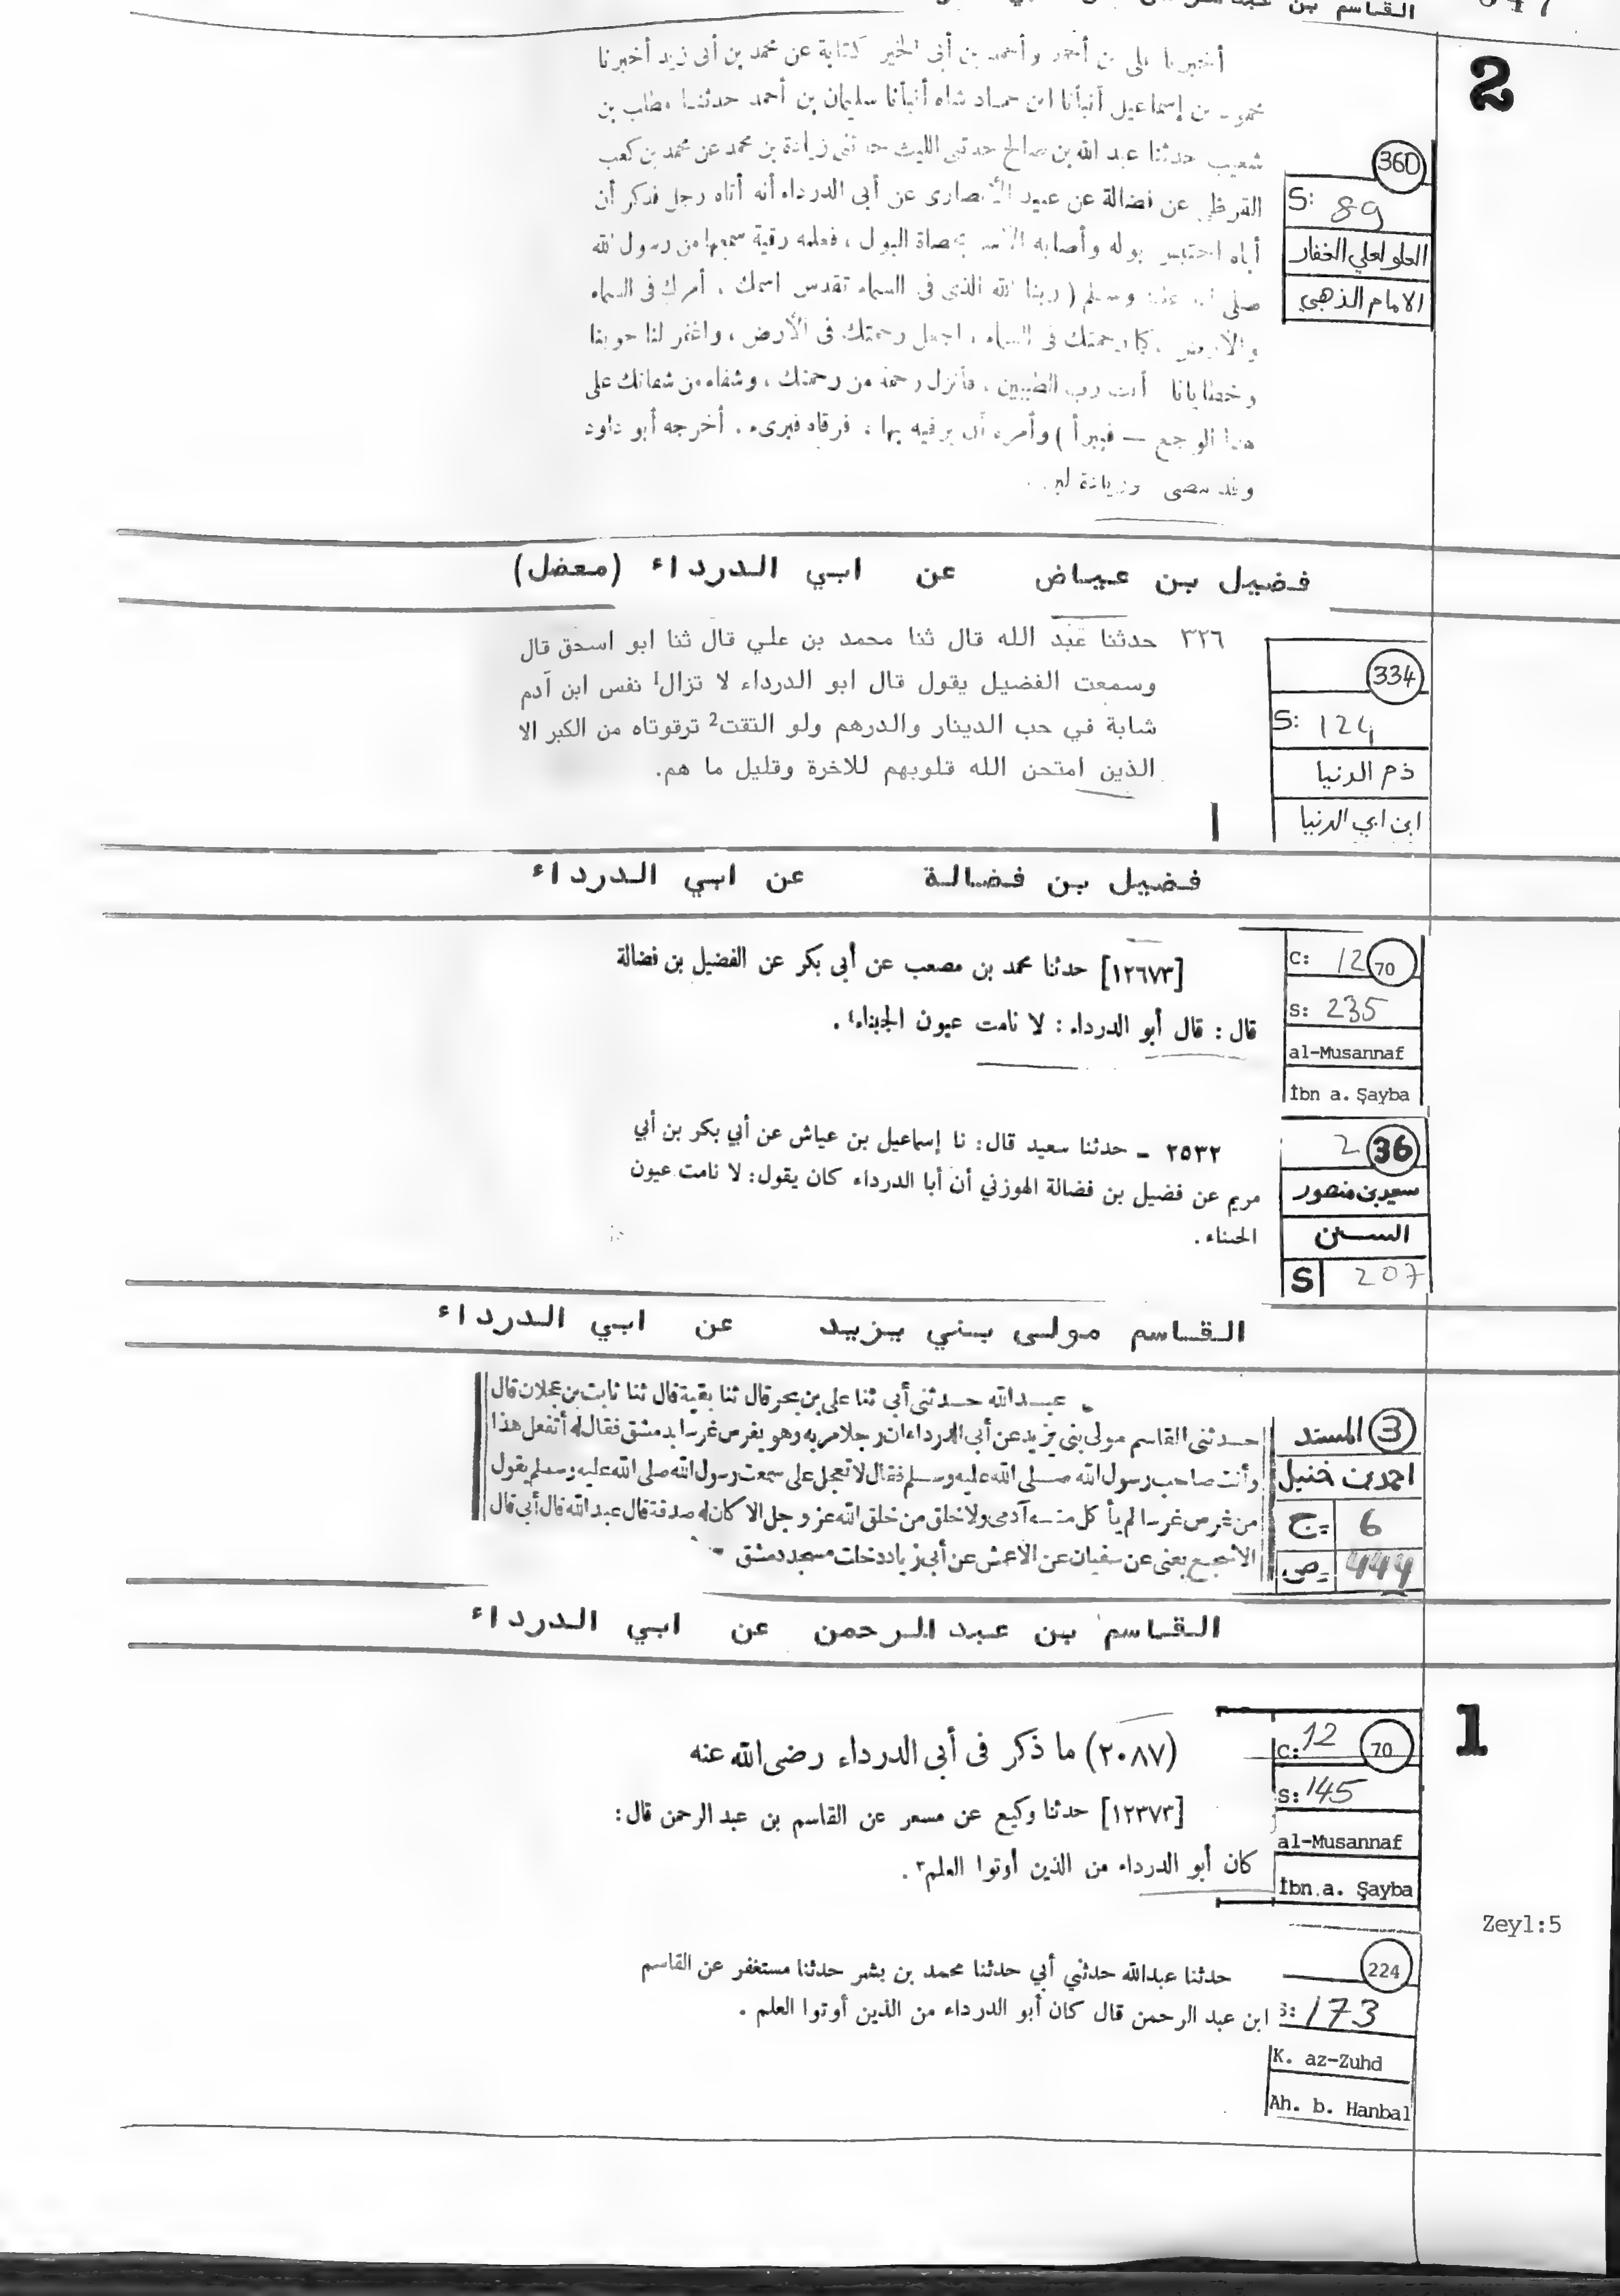 القاسم بن
2
أخبرنا على بن أحمد وأحمد بن أبى الخير كتابة عن محمد بن أبى زيد أخبرنا
محمود بن إسماعيل أنبأنا ابن حماد شاه أنبأنا سليمان بن أحمد حدثنا مطلب بن
شعيب حدثنا عبد الله بن صالح حدثنى الليث حدثنى زيادة بن محمد عن محمد بن كعب
القرظى عن فضالة عن عبيد الأنصارى عن أبى الدرداء أنه أتاه رجل فذكر أن
أباه احتبس بوله وأصابه الأسر بحصاة البول ، فعلمه رقية سمعها من رسول الله
صلى الله عليه وسلم ( ربنا الله الذى فى السماء تقدس اسمك ، أمرك فى السماء
والأرض ، كما رحمتك فى السماء ، اجعل رحمتك فى الأرض ، واغفر لنا حوبنا
وخطايانا أنت رب الطيبين ، فأنزل رحمة من رحمتك ، وشفاء من شفائك على
هذا الوجع — فيبرأ ) وأمره أن يرقيه بها ، فرقاه فبرىء . أخرجه أبو داود
وقد مضى وزيادة
360
S: 89
العلو لعلي الغفار
الامام الذهبي
فضيل بن عياض عن ابي الدرداء (معضل)
٣٢٦ حدثنا عبد الله قال ثنا محمد بن علي قال ثنا ابو اسحق قال
وسمعت الفضيل يقول قال ابو الدرداء لا تزال1 نفس ابن آدم
شابة في حب الدينار والدرهم ولو التقت2 ترقوتاه من الكبر الا
الذين امتحن الله قلوبهم للاخرة وقليل ما هم.
334
S: 124
ذم الدنيا
ابن ابي الدنيا
فضيل بن فضالة عن ابي الدرداء
[١٢٦٧٣] حدثنا محمد بن مصعب عن أبى بكر عن الفضيل بن فضالة
قال : قال أبو الدرداء : لا نامت عيون الجبناء٤ .
C: 12 70
S: 235
al-Musannaf
İbn a. Şayba
٢٥٣٢ - حدثنا سعيد قال: نا إسماعيل بن عياش عن أبي بكر بن أبي
مريم عن فضيل بن فضالة الهوزني أن أبا الدرداء كان يقول: لا نامت عيون
الجبناء .
2 36
سعيد بن منصور
السنن
S 207
القاسم مولى بني يزيد عن ابي الدرداء
عبد الله حدثنى أبى ثنا على بن بحر قال ثنا بقية قال ثنا ثابت بن عجلان قال
حدثنى القاسم مولى بنى يزيد عن أبى الدرداء ان رجلا مر به وهو يغرس غرسا بدمشق فقال له أتفعل هذا
وأنت صاحب رسول الله صلى الله عليه وسلم فقال لا تعجل على سمعت رسول الله صلى الله عليه وسلم يقول
من غرس غرسا لم يأكل منه آدمى ولا خلق من خلق الله عز وجل الا كان له صدقة قال عبد الله قال أبى قال
الاشجعى يعنى عن سفيان عن الاعمش عن أبى زياد دخلت مسجد دمشق
3 المسند
احمد بن حنبل
ج 6
ص 444
القاسم بن عبد الرحمن عن ابي الدرداء
1
(٢٠٨٧) ما ذكر فى أبى الدرداء رضى الله عنه
[١٢٣٧٣] حدثنا وكيع عن مسعر عن القاسم بن عبد الرحمن قال :
كان أبو الدرداء من الذين أوتوا العلم٣ .
C: 12 70
S: 145
al-Musannaf
İbn a. Şayba
Zeyl:5
حدثنا عبدالله حدثني أبي حدثنا محمد بن بشر حدثنا مستغفر عن القاسم
ابن عبد الرحمن قال كان أبو الدرداء من الذين أوتوا العلم .
224
S: 173
K. az-Zuhd
Ah. b. Hanbal